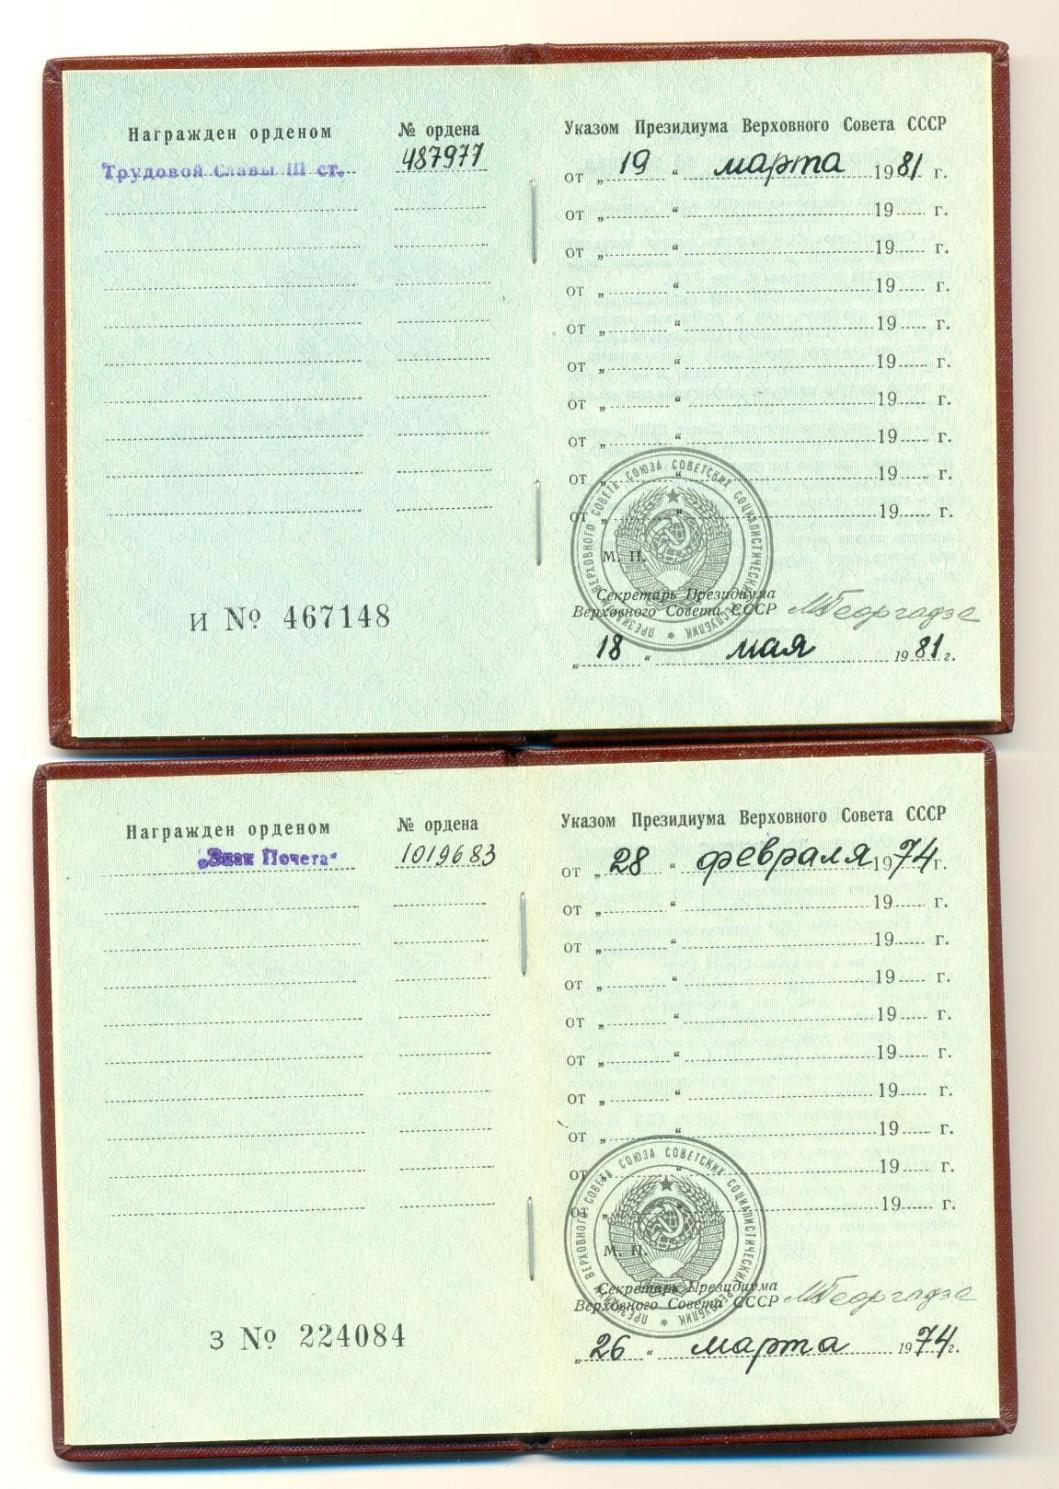 Награжден орденом
№ ордена
Трудовой Славы III ст.
487977
И № 467148
Указом Президиума Верховного Совета СССР
от „ 19 “ марта 1981 г.
от „ “ 19 г.
от „ “ 19 г.
от „ “ 19 г.
от „ “ 19 г.
от „ “ 19 г.
от „ “ 19 г.
от „ “ 19 г.
от „ “ 19 г.
от „ “ 19 г.
ПРЕЗИДИУМ ВЕРХОВНОГО СОВЕТА СОЮЗА СОВЕТСКИХ СОЦИАЛИСТИЧЕСКИХ РЕСПУБЛИК
М. П.
Секретарь Президиума
Верховного Совета СССР МГеоргадзе
„ 18 “ мая 1981 г.
Награжден орденом
№ ордена
„Знак Почета“
1019683
З № 224084
Указом Президиума Верховного Совета СССР
от „ 28 “ февраля 1974 г.
от „ “ 19 г.
от „ “ 19 г.
от „ “ 19 г.
от „ “ 19 г.
от „ “ 19 г.
от „ “ 19 г.
от „ “ 19 г.
от „ “ 19 г.
от „ “ 19 г.
ПРЕЗИДИУМ ВЕРХОВНОГО СОВЕТА СОЮЗА СОВЕТСКИХ СОЦИАЛИСТИЧЕСКИХ РЕСПУБЛИК
М. П.
Секретарь Президиума
Верховного Совета СССР МГеоргадзе
„ 26 “ марта 1974 г.